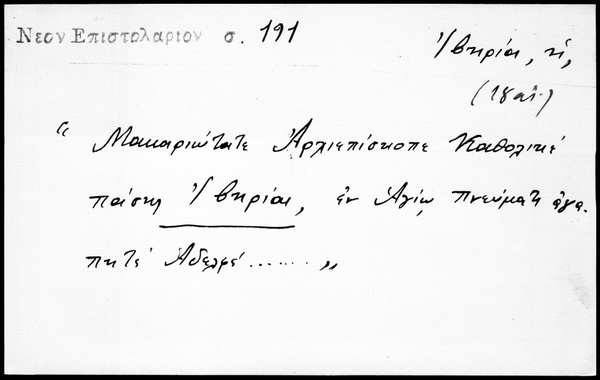 Νεον Επιστολαριον σ. 191
Ἰβηρία, ἡ,
“ Μακαριώτατε Ἀρχιεπίσκοπε Καθολικέ
πάσης Ἰβηρίας, ἐν Ἁγίῳ Πνεύματι ἀγα-
πητέ Ἀδελφέ ...... „